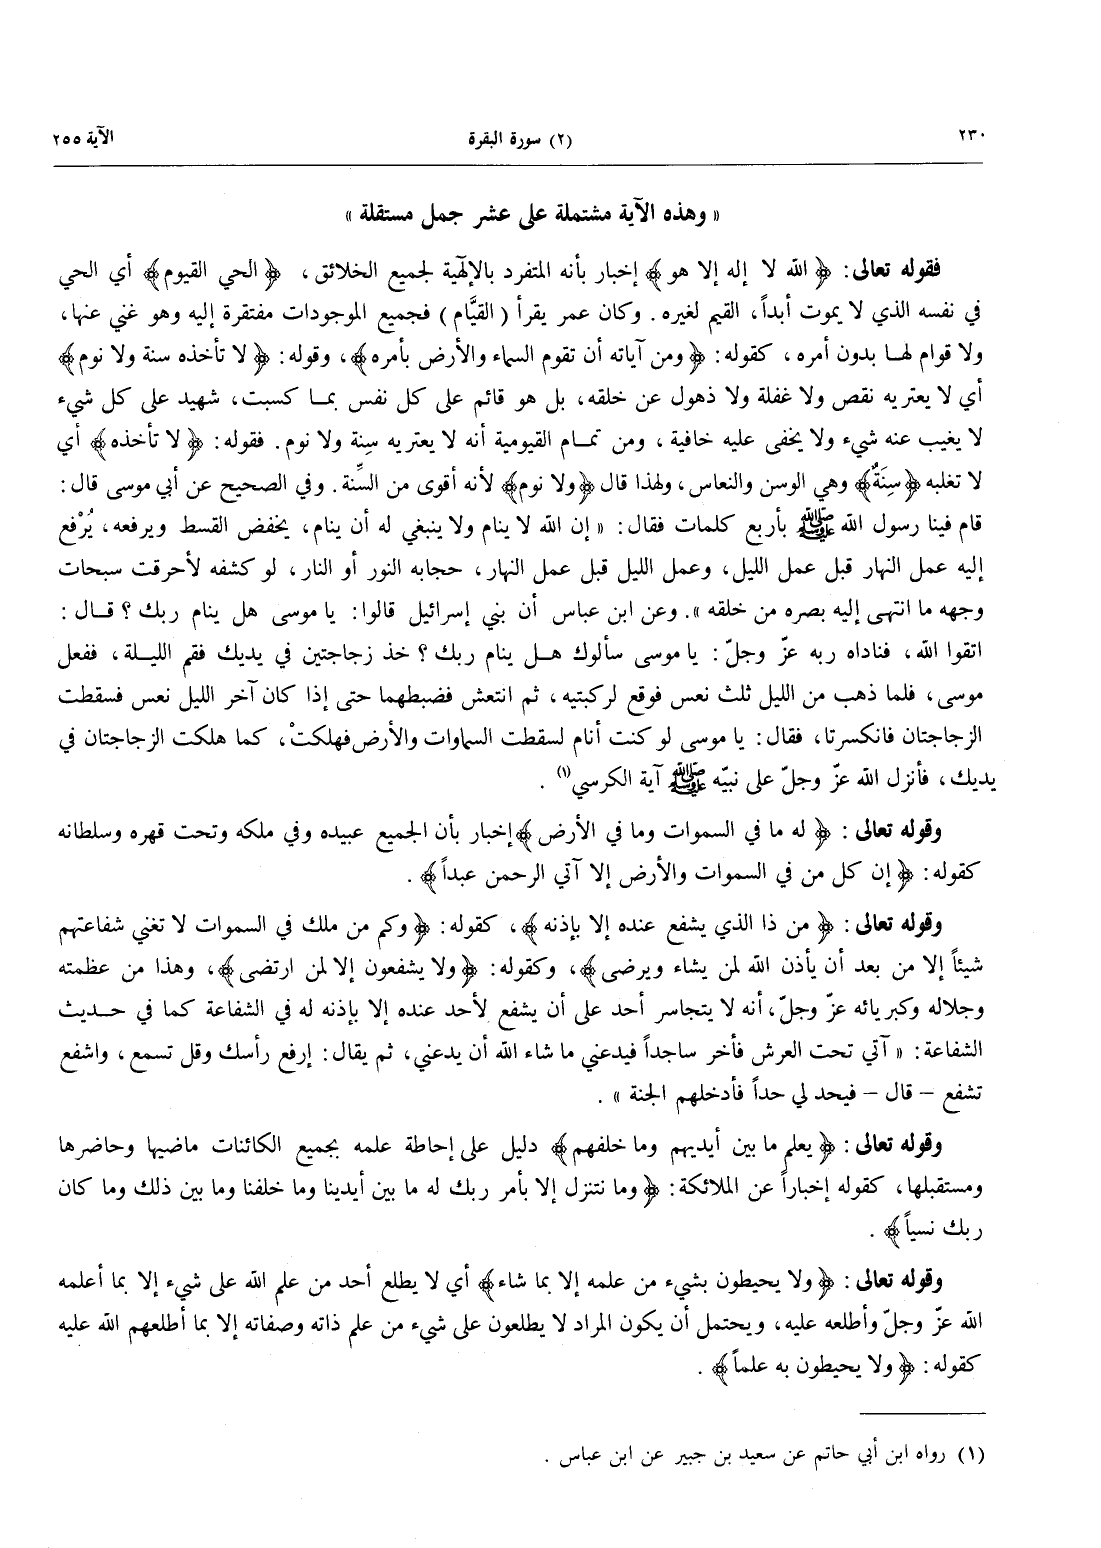 ٢٣٠ (٢) سورة البقرة الآية ٢٥٥
« وهذه الآية مشتملة على عشر جمل مستقلة »
فقوله تعالى: ﴿ الله لا إله إلا هو ﴾ إخبار بأنه المتفرد بالإلٰهية لجميع الخلائق ، ﴿ الحي القيوم ﴾ أي الحي
في نفسه الذي لا يموت أبداً، القيم لغيره . وكان عمر يقرأ ( القيَّام ) فجميع الموجودات مفتقرة إليه وهو غني عنها،
ولا قوام لها بدون أمره ، كقوله: ﴿ ومن آياته أن تقوم السماء والأرض بأمره ﴾، وقوله: ﴿ لا تأخذه سنة ولا نوم ﴾
أي لا يعتريه نقص ولا غفلة ولا ذهول عن خلقه، بل هو قائم على كل نفس بما كسبت، شهيد على كل شيء
لا يغيب عنه شيء ولا يخفى عليه خافية ، ومن تمام القيومية أنه لا يعتريه سِنة ولا نوم. فقوله: ﴿ لا تأخذه ﴾ أي
لا تغلبه ﴿ سِنَةٌ ﴾ وهي الوسن والنعاس، ولهذا قال ﴿ ولا نوم ﴾ لأنه أقوى من السِّنة. وفي الصحيح عن أبي موسى قال:
قام فينا رسول الله ﷺ بأربع كلمات فقال: « إن الله لا ينام ولا ينبغي له أن ينام، يخفض القسط ويرفعه، يُرْفع
إليه عمل النهار قبل عمل الليل، وعمل الليل قبل عمل النهار، حجابه النور أو النار، لو كشفه لأحرقت سبحات
وجهه ما انتهى إليه بصره من خلقه ». وعن ابن عباس أن بني إسرائيل قالوا: يا موسى هل ينام ربك ؟ قال:
اتقوا الله، فناداه ربه عزّ وجلّ: يا موسى سألوك هل ينام ربك ؟ خذ زجاجتين في يديك فقم الليلة، ففعل
موسى، فلما ذهب من الليل ثلث نعس فوقع لركبتيه، ثم انتعش فضبطهما حتى إذا كان آخر الليل نعس فسقطت
الزجاجتان فانكسرتا، فقال: يا موسى لو كنت أنام لسقطت السماوات والأرض فهلكتْ، كما هلكت الزجاجتان في
يديك، فأنزل الله عزّ وجلّ على نبيّه ﷺ آية الكرسي(١) .
وقوله تعالى: ﴿ له ما في السموات وما في الأرض ﴾ إخبار بأن الجميع عبيده وفي ملكه وتحت قهره وسلطانه
كقوله: ﴿ إن كل من في السموات والأرض إلا آتي الرحمن عبداً ﴾ .
وقوله تعالى: ﴿ من ذا الذي يشفع عنده إلا بإذنه ﴾، كقوله: ﴿ وكم من ملك في السموات لا تغني شفاعتهم
شيئاً إلا من بعد أن يأذن الله لمن يشاء ويرضى ﴾، وكقوله: ﴿ ولا يشفعون إلا لمن ارتضى ﴾، وهذا من عظمته
وجلاله وكبريائه عزّ وجلّ، أنه لا يتجاسر أحد على أن يشفع لأحد عنده إلا بإذنه له في الشفاعة كما في حديث
الشفاعة: « آتي تحت العرش فأخر ساجداً فيدعني ما شاء الله أن يدعني، ثم يقال: إرفع رأسك وقل تسمع، واشفع
تشفع – قال – فيحد لي حداً فأدخلهم الجنة » .
وقوله تعالى: ﴿ يعلم ما بين أيديهم وما خلفهم ﴾ دليل على إحاطة علمه بجميع الكائنات ماضيها وحاضرها
ومستقبلها، كقوله إخباراً عن الملائكة: ﴿ وما نتنزل إلا بأمر ربك له ما بين أيدينا وما خلفنا وما بين ذلك وما كان
ربك نسياً ﴾ .
وقوله تعالى: ﴿ ولا يحيطون بشيء من علمه إلا بما شاء ﴾ أي لا يطلع أحد من علم الله على شيء إلا بما أعلمه
الله عزّ وجلّ وأطلعه عليه، ويحتمل أن يكون المراد لا يطلعون على شيء من علم ذاته وصفاته إلا بما أطلعهم الله عليه
كقوله: ﴿ ولا يحيطون به علماً ﴾ .
(١) رواه ابن أبي حاتم عن سعيد بن جبير عن ابن عباس .